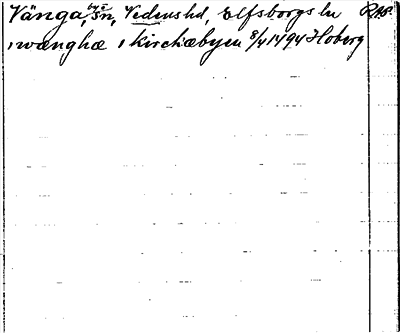 Vänga, by o sn, Vedens hd, Elfsborgs län RAP.
i wænghæ i kirckæbyen 8/4 1494 Hoberg